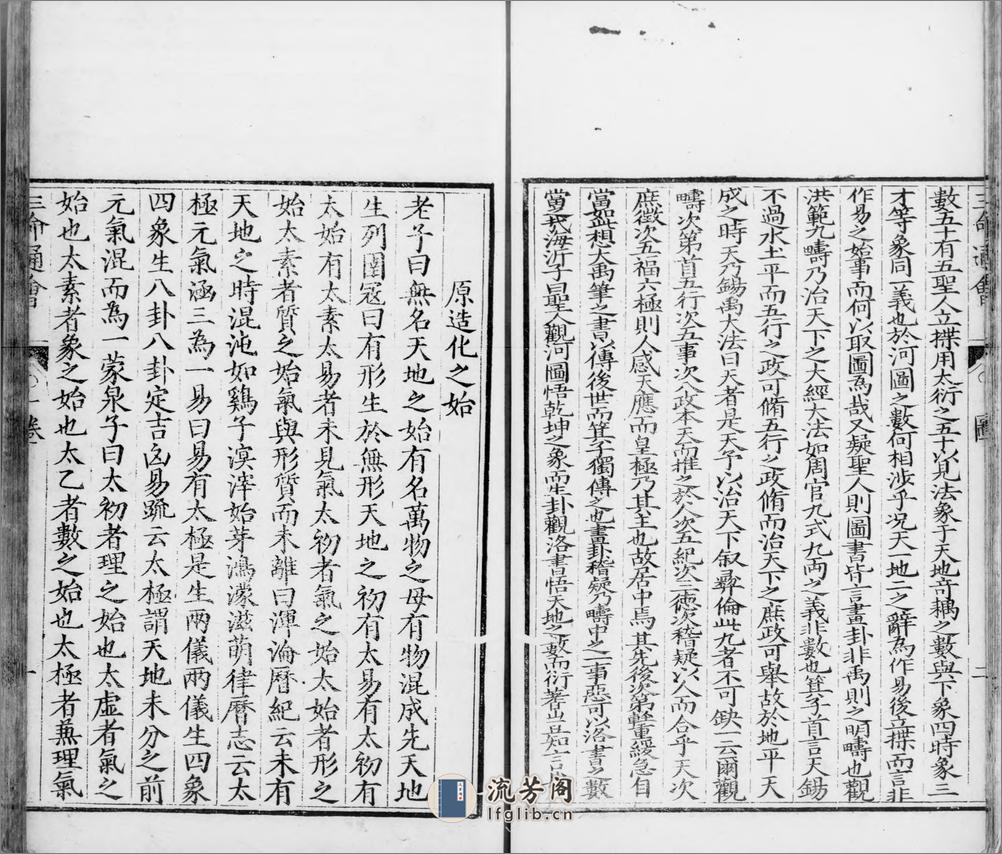 三命通會
圖
二
數五十有五聖人立揲用太衍之五十以見法象于天地奇耦之數與下象四時象三
才等象同一義也於河圖之數何相涉乎况天一地二之辭為作易後立揲而言非
作易之始事而何以取圖為哉又疑聖人則圖書皆言畫卦非禹則之明疇也
洪範九疇乃治天下之大經大法如周官九式九两之義非數也箕子首言天錫
不過水土平而五行之政可脩五行之政脩而治天下之庶政可舉故於地平天
成之時天乃錫禹大法曰天者是天予以治天下叙彛倫此九者不可缺一云爾觀
疇次第首五行次五事次八政本天而推之於人次五紀次三德次稽疑以人而合乎天次
庶徵次五福六極則人感天應而皇極乃其主也故居中焉其先後次第輕重緩急自
當盔想大禹筆之書以傳後世而箕子獨傳之也畫卦稽疑乃疇中之一事惡可以洛書之數
當哉海沂子曰聖人觀河圖悟乾坤之象而生卦觀洛書悟天地之數而衍蓍此知言
原造化之始
老子曰無名天地之始有名萬物之母有物混成先天地
生列圄冦曰有形生於無形天地之初有太易有太初有
太始有太素太易者未見氣太初者氣之始太始者形之
始太素者質之始氣與形質而未離曰渾淪曆紀云未有
天地之時混沌如鷄子溟涬始芽鴻濛滋萌律曆志云太
極元氣涵三為一易曰易有太極是生兩儀兩儀生四象
四象生八卦八卦定吉凶易䟽云太極謂天地未分之前
元氣混而為一蒙泉子曰太初者理之始也太虛者氣之
始也太素者象之始也太乙者數之始也太極者兼理氣
三命通會
卷一
一
流芳阁
lfglib.cn